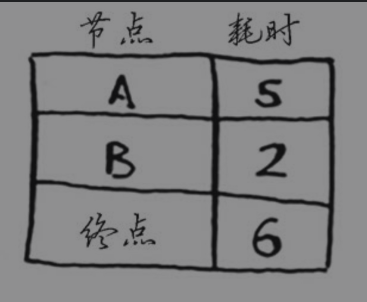 节点 耗时
A 5
B 2
终点 6